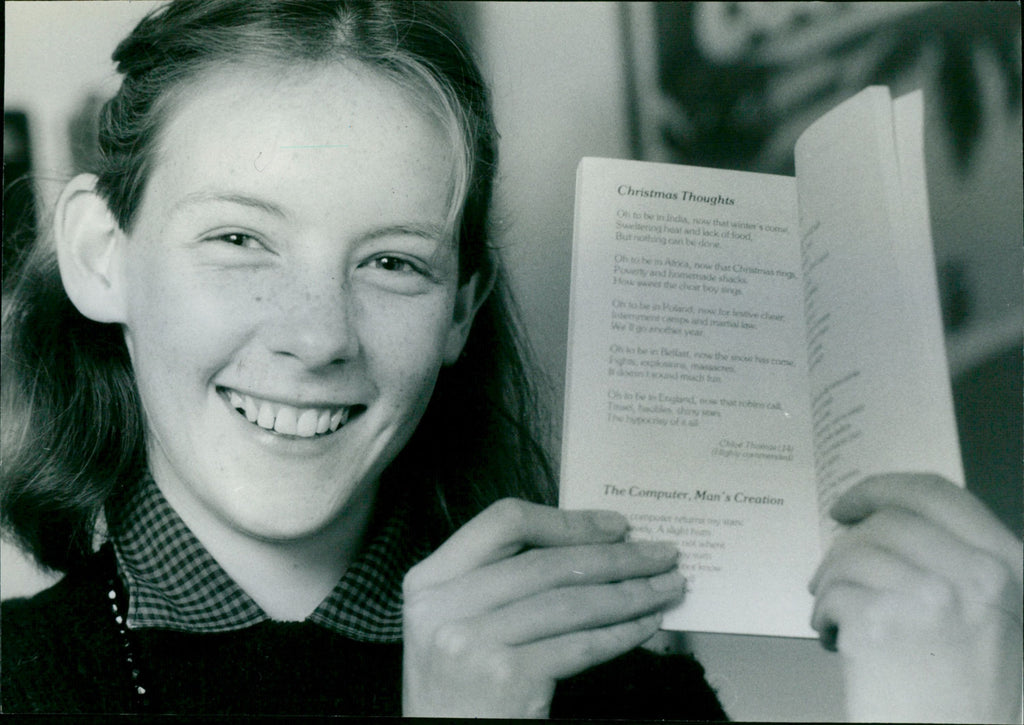 Christmas Thoughts
Oh to be in India, now that winter's come,
Sweltering heat and lack of food,
But nothing can be done.
Oh to be in Africa, now that Christmas rings,
Poverty and homemade shacks.
How sweet the choir boy sings.
Oh to be in Poland, now for festive cheer,
Internment camps and martial law.
We'll go another year.
Oh to be in Belfast, now the snow has come,
Fights, explosions, massacres,
It doesn't sound much fun.
Oh to be in England, now that robins call,
Tinsel, baubles, shiny stars,
The hypocrisy of it all.
Chloe Thomas (14)
(Highly commended)
The Computer, Man's Creation
computer returns my stare
A slight hum
not where
not know